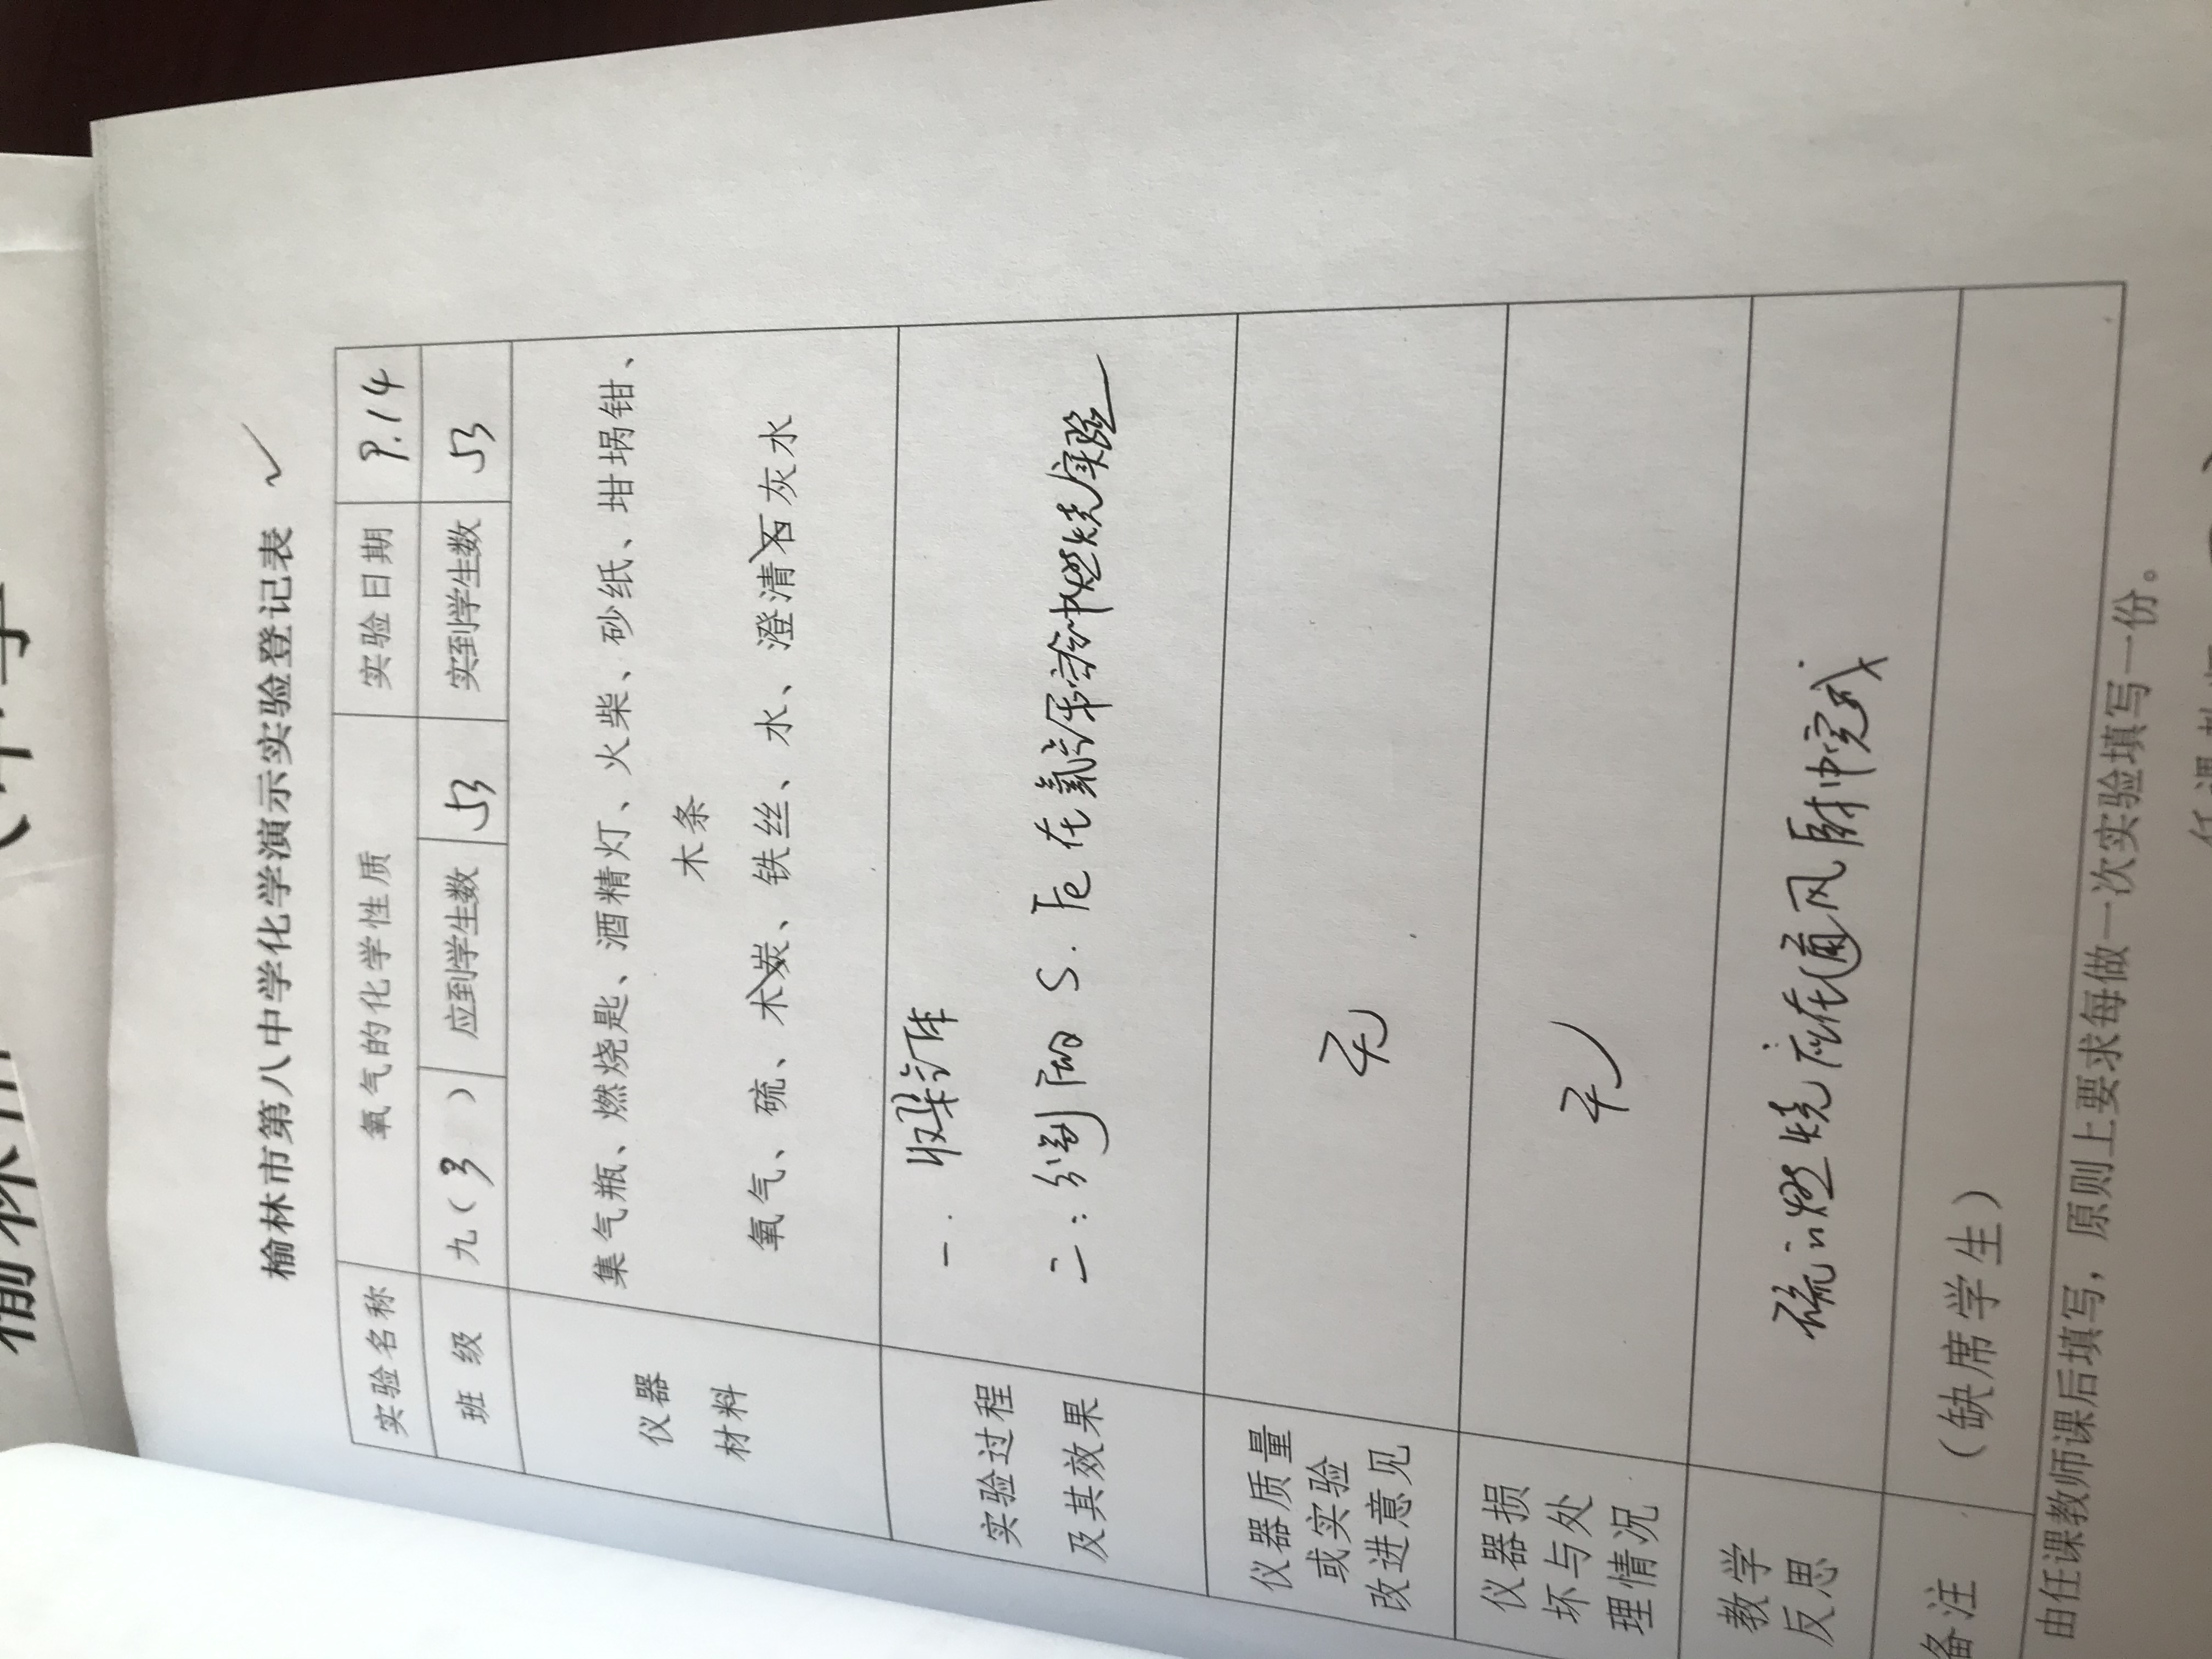 榆林市第八中学化学演示实验登记表 ✓
实验名称 氧气的化学性质 实验日期 9.14
班 级 九(3) 应到学生数 53 实到学生数 53
仪器
材料
集气瓶、燃烧匙、酒精灯、火柴、砂纸、坩埚钳、
木条
氧气、硫、木炭、铁丝、水、澄清石灰水
实验过程
及其效果
一. 收集气体
二: 分别 S. Fe 在氧气和空气中燃烧实验
仪器质量
或实验
改进意见
无
仪器损
坏与处
理情况
无
教学
反思
硫的燃烧应在通风厨中完成.
备注 (缺席学生)
由任课教师课后填写，原则上要求每做一次实验填写一份。